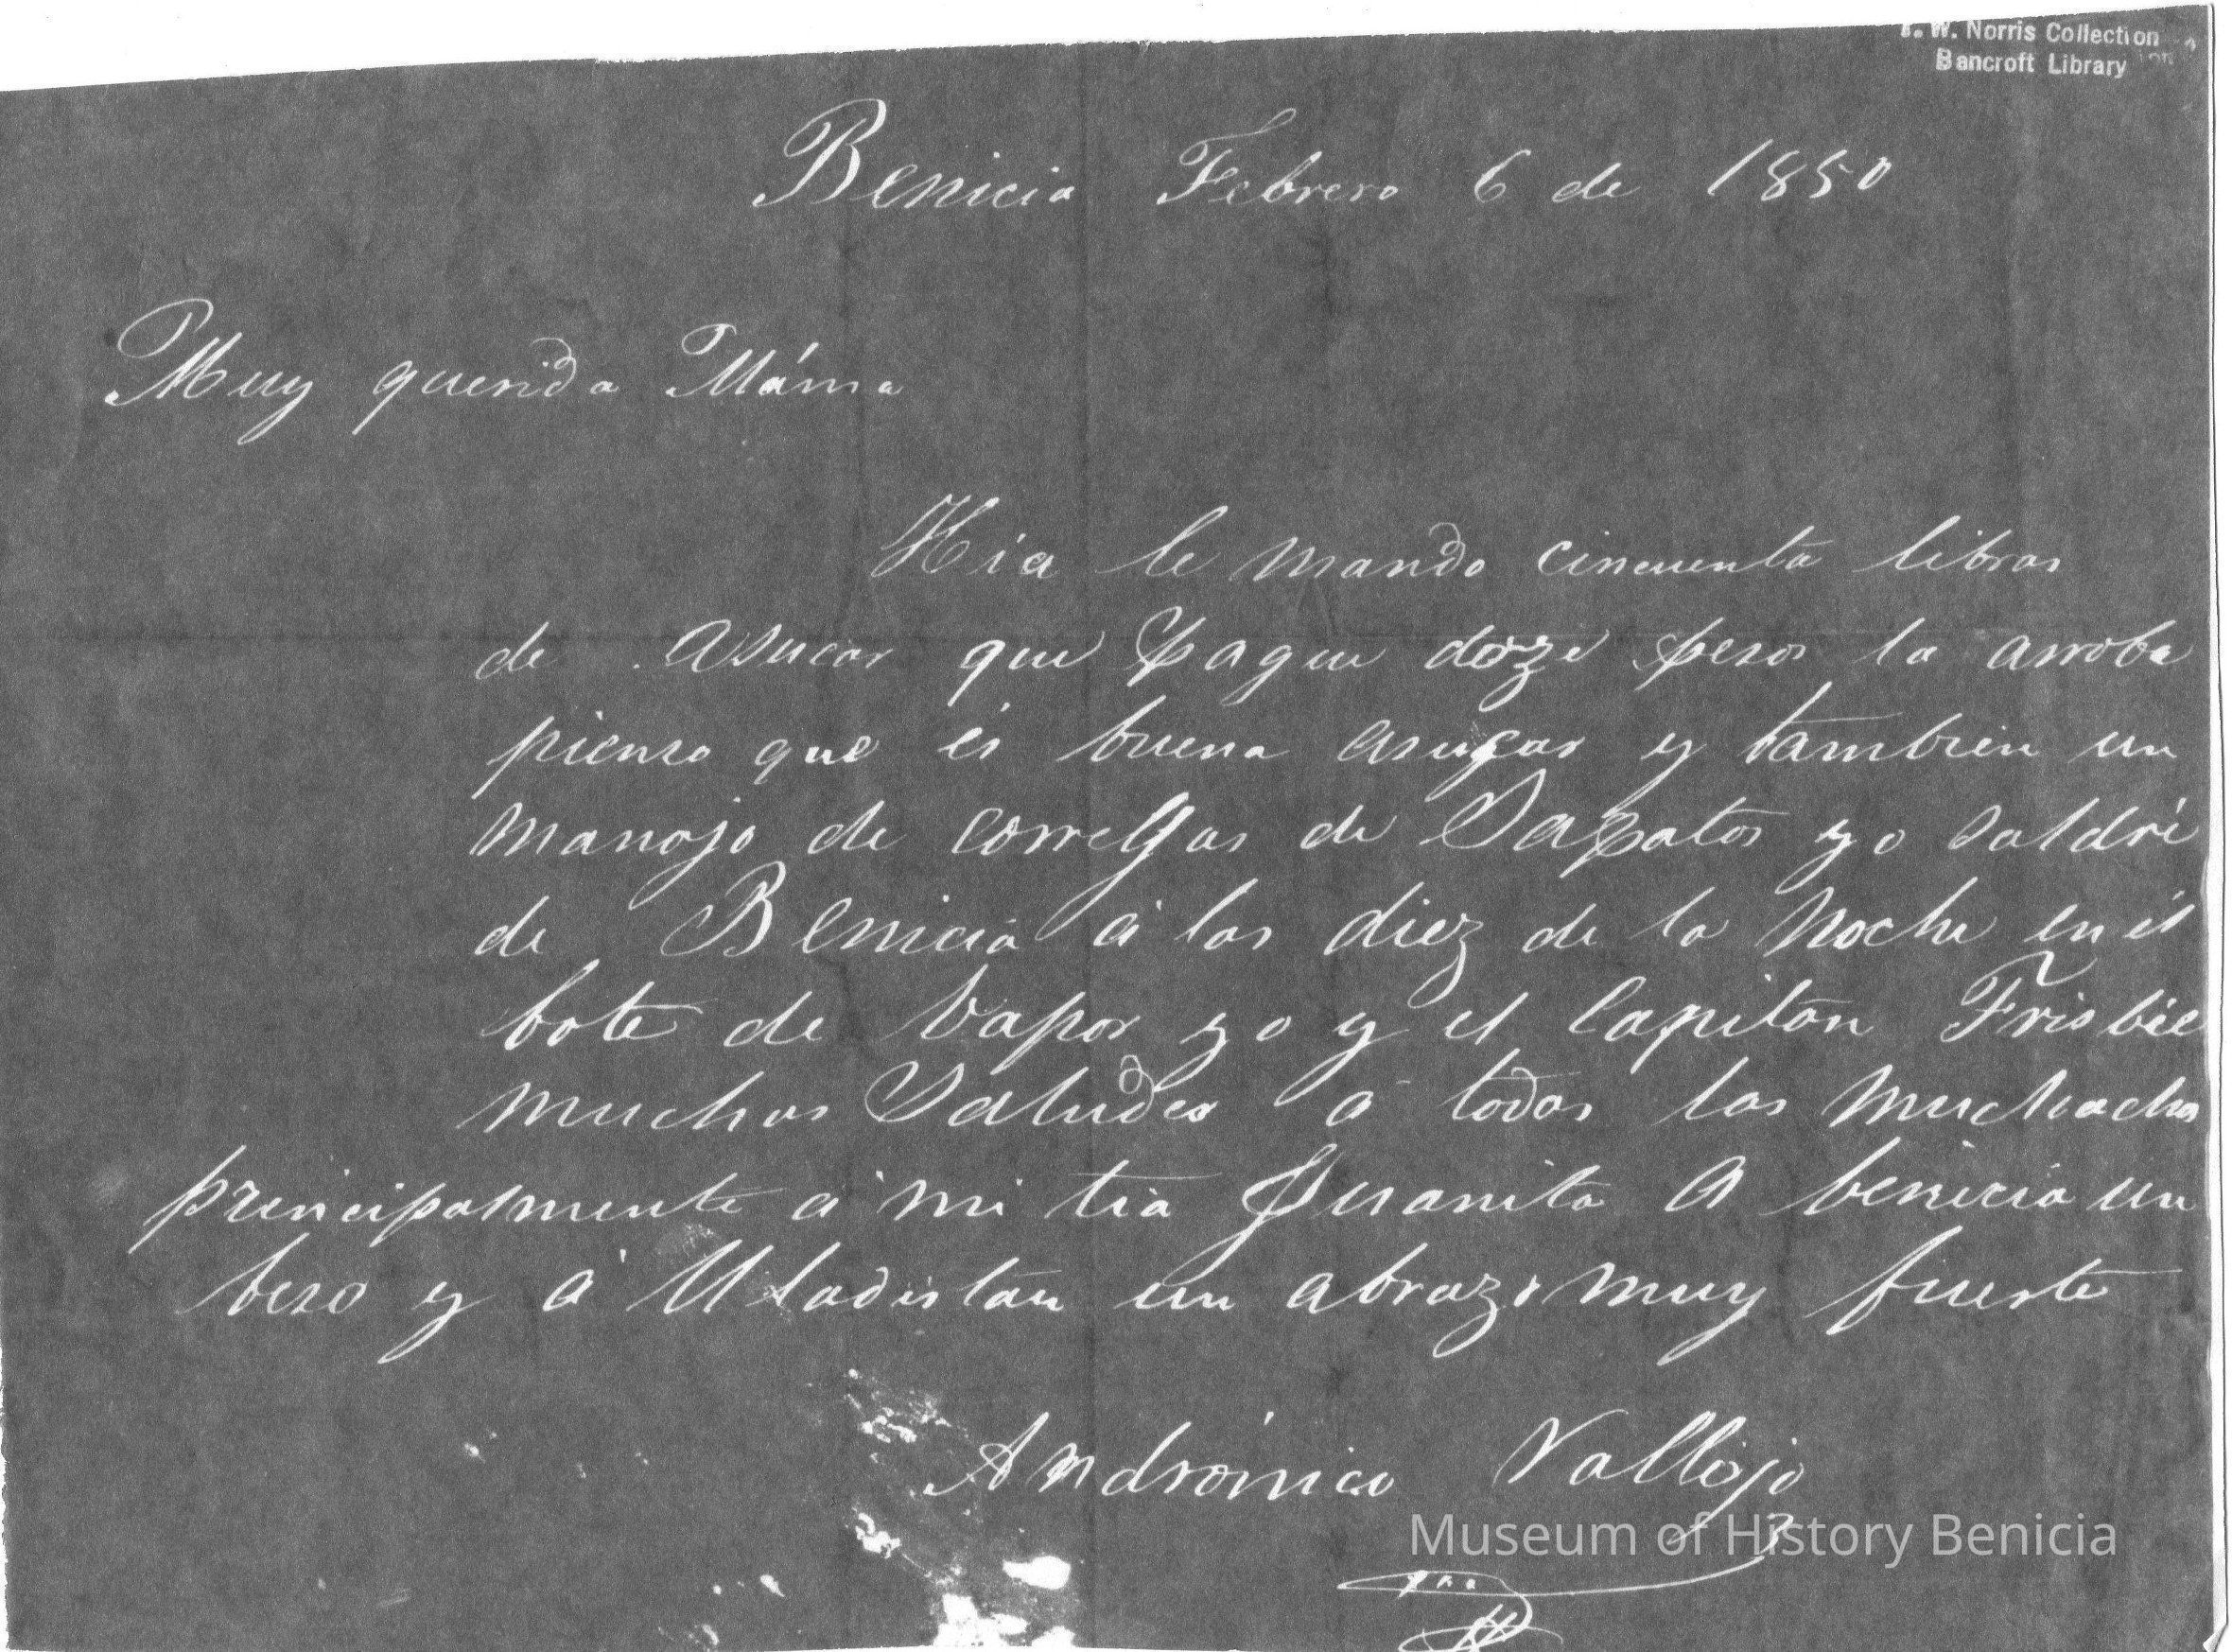 T. W. Norris Collection
Bancroft Library
Benicia Febrero 6 de 1850
Muy querida Máma
Hia le mando cincuenta libras
de asucar que pague doze pesos la arroba
pienso que és buena asucar y tambien un
manojo de correllas de Sapatos yo saldré
de Benicia á las diez de la noche en él
bote de Vapor yo y el Capitán Frisbie
muchas Saludes á todas las muchachas
principalmente á mi tia Juanita A benicia un
beso y á Uladislau un abrazo muy fuerte
Andrónico Vallejo
Museum of History Benicia